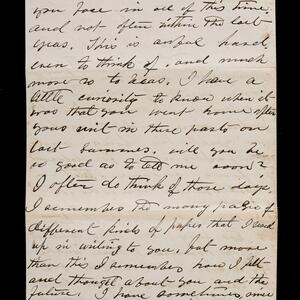 you face in all of this time:
and not often within the last
year. This is awful hard
even to think of, and much
more so to bear. I have a
little curiosity to know when it
was that you went home after
your visit in these parts on
last Summer. will you be
so good as to tell me soon?
I often do think of those days.
I remember the many pages of
different kinds of paper that I used
up in writing to you, but more
than this I remember how I felt
and thought about you and the
future. I have sometimes